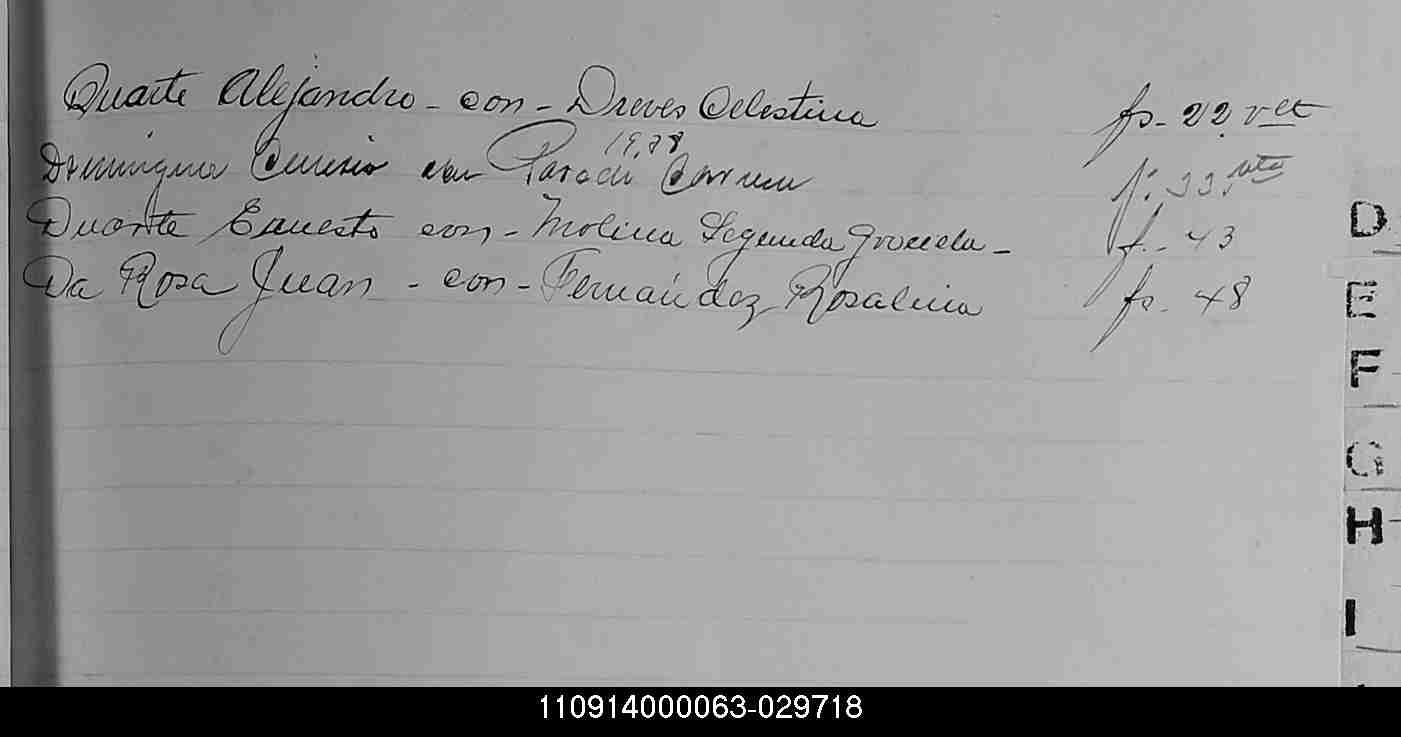 Duarte Alejandro - con - Dreves Celestina fs. 22 vet
1938
con Parodi Carmen f: 33 vta
Duarte Ernesto con - Molina Segunda Graciela - f. - 43
Da Rosa Juan - con - Fernández Rosalina fs. 48
D
E
F
G
H
I
110914000063-029718